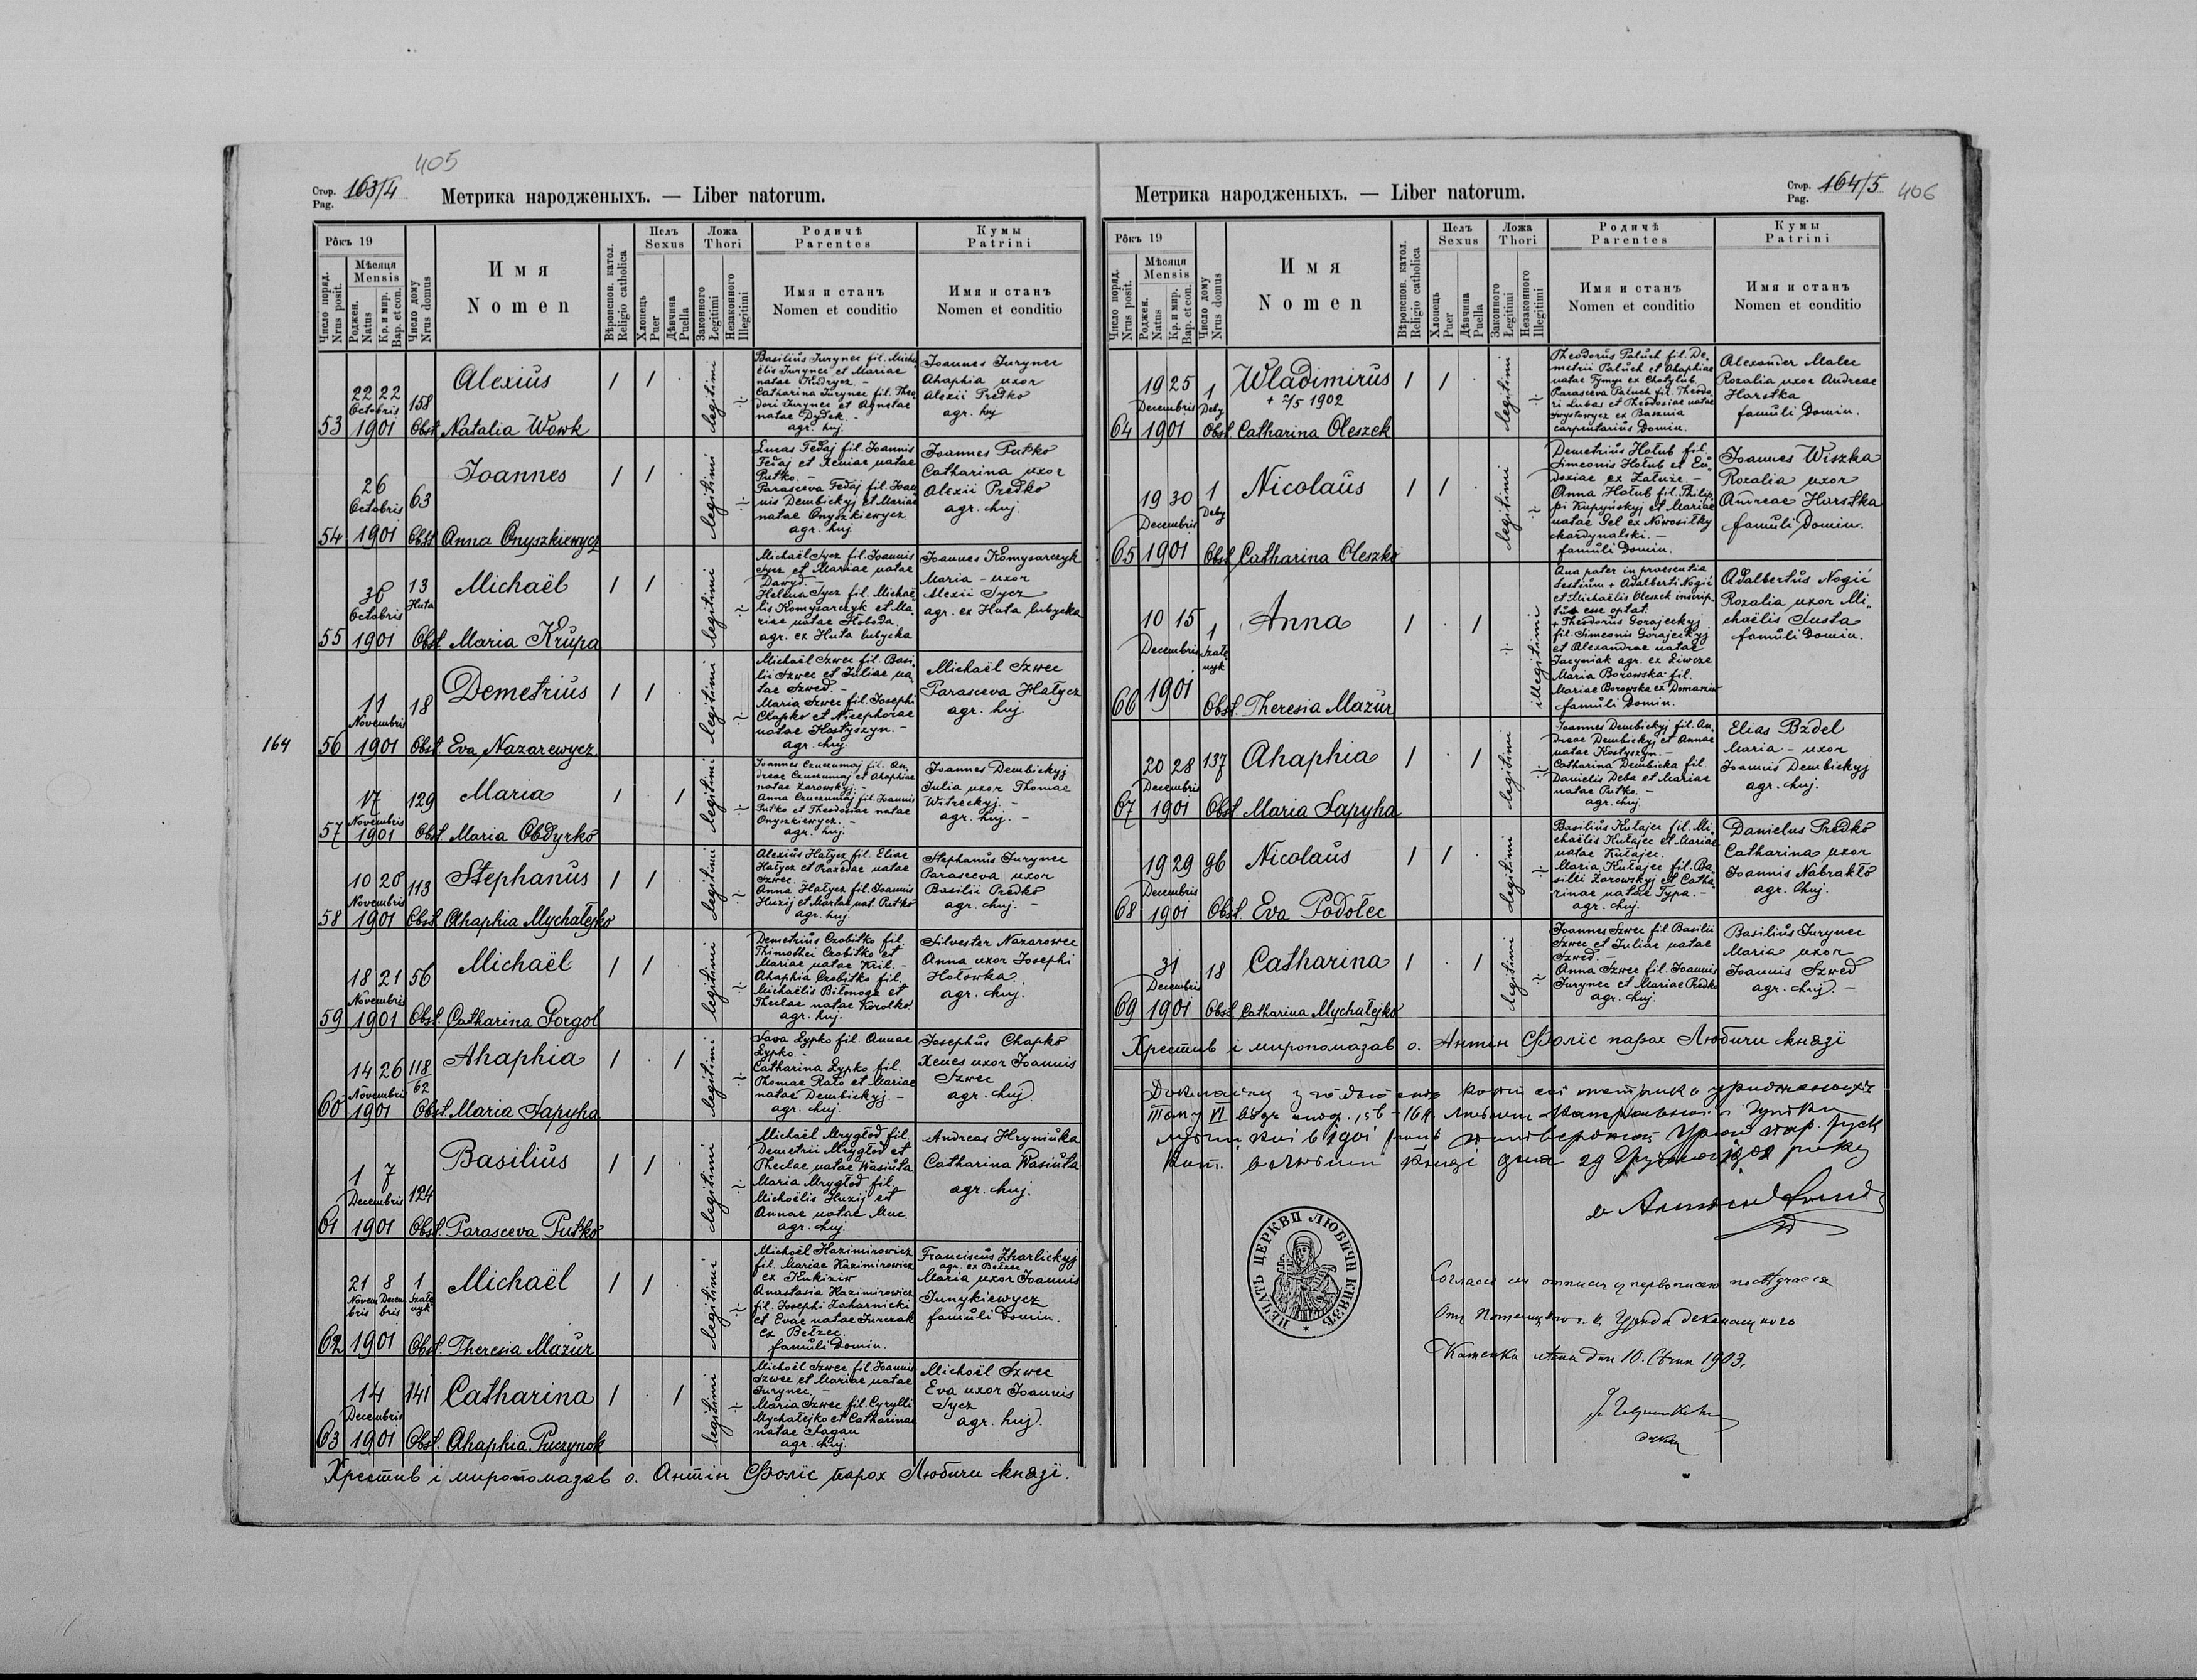 405
Стор.
Pag. 163/4
Метрика народженыхъ. — Liber natorum.
Рôкъ 19
Число поряд.
Nrus posit.
Мѣсяця
Mensis
Роджен.
Natus
Кр. и мир.
Bap. et con.
Число дому
Nrus domus
Имя
Nomen
Вѣроиспов. катол.
Religio catholica
Полъ
Sexus
Хлопець
Puer
Дѣвчина
Puella
Ложа
Thori
Законного
Legitimi
Незаконного
Illegitimi
Родичѣ
Parentes
Имя и станъ
Nomen et conditio
Кумы
Patrini
Имя и станъ
Nomen et conditio
53
22 22
Octobris
1901
158
Alexius
Obst. Natalia Wowk
1 1 ·
legitimi
Basilius Jurynec fil. Micha
ëlis Jurynec et Mariae
natae Kudrycz. –
Catharina Jurynec fil. Theo
dori Jurynec et Agnetae
natae Dydek. –
agr. huj.
Joannes Jurynec
Ahaphia uxor
Alexii Predko
agr. hj
54
26
Octobris
1901
63
Joannes
Obst Anna Onyszkiewycz
1 1 ·
legitimi
Lucas Fedaj fil. Joannis
Fedaj et Xeniae natae
Putko. –
Parasceva Fedaj fil. Joan
nis Dembickyj et Mariae
natae Onyszkiewycz
agr. huj.
Joannes Putko
Catharina uxor
Alexii Predko
agr. huj.
55
Octobris
1901
13
Huta
Michaël
Obst. Maria Krupa
1 1 ·
legitimi
Michaël Sycz fil. Joannis
Sycz et Mariae natae
Dawyd. –
Helena Sycz fil. Michaë
lis Komysarczyk et Ma
riae natae Słoboda.
agr. ex Huta lubycka
Joannes Komysarczyk
Maria – uxor
Alexii Sycz
agr. ex Huta lubycka
164
56
11
Novembris
1901
18
Demetrius
Obst. Eva Nazarewycz
1 1 ·
legitimi
Michaël Szwec fil. Basi
lii Szwec et Juliae na
tae Szwed. –
Maria Szwec fil. Josephi
Chapko et Nicephorae
natae Kostyszyn. –
agr. huj.
Michaël Szwec
Parasceva Hałycz
agr. huj
57
17
Novembris
1901
129
Maria
Obst. Maria Obdyrko
1 · 1
legitimi
Joannes Czuczumaj fil. An
dreae Czuczumaj et Ahaphiae
natae Żarowskyj. –
Anna Czuczumaj fil. Joannis
Putko et Theodosiae natae
Onyszkiewycz. –
agr. huj.
Joannes Dembickyj
Julia uxor Thomae
Witreckyj. –
agr. huj. –
58
10 20
Novembris
1901
113
Stephanus
Obst. Ahaphia Mychałejko
1 1 ·
legitimi
Alexius Hałycz fil. Eliae
Hałycz et Praxedae natae
Szwec. –
Anna Hałycz fil. Joannis
Huzij et Martae nat. Putko
agr. huj.
Stephanus Jurynec
Parasceva uxor
Basilii Predko
agr. huj. –
59
18 21
Novembris
1901
56
Michaël
Obst. Catharina Gorgol
1 1 ·
legitimi
Demetrius Czobitko fil.
Thimothei Czobitko et
Mariae natae Kril. –
Ahaphia Czobitko fil.
Michaëlis Biłonoga et
Theclae natae Korolko.
agr. huj.
Silvester Nazarowec
Anna uxor Josephi
Hołowka.
agr. huj.
60
14 26
Novembris
1901
118
62
Ahaphia
Obst. Maria Sapyha
1 · 1
legitimi
Sava Łypko fil. Annae
Łypko. –
Catharina Łypko fil.
Thomae Rato et Mariae
natae Dembickyj. –
agr. huj.
Josephus Chapko
Xenes uxor Joannis
Szwec
agr. huj.
61
1 7
Decembris
1901
124
Basilius
Obst. Parasceva Putko
1 1 ·
legitimi
Michaël Mrygłod fil.
Demetrii Mrygłod et
Theclae natae Wasiuta
Maria Mrygłod fil.
Michaëlis Huzij et
Annae natae Muc.
agr. huj.
Andreas Hryniuka
Catharina Wasiuta
agr. huj.
62
21 8
Novem Decem
bris bris
1901
1
Szałe
nyk
Michaël
Obst. Theresia Mazur
1 1 ·
legitimi
Michaël Kazimirowicz
fil. Mariae Kazimirowicz
ex Kukiziw
Anastasia Kazimirowicz
fil. Josephi Zaharnicki
et Evae natae Jurczak
ex Bełzec.
famuli Domin.
Franciscus Zharlickyj
agr. ex Bełzec
Maria uxor Joannis
Junykiewycz
famuli Domin.
63
14
Decembris
1901
141
Catharina
Obst. Ahaphia Puczynok
1 · 1
legitimi
Michaël Szwec fil. Joannis
Szwec et Mariae natae
Jurynec. –
Maria Szwec fil. Cyrylli
Mychałejko et Catharinae
natae Sagan
agr. huj.
Michaël Szwec
Eva uxor Joannis
Sycz
agr. huj.
Хрестив і миропомазав о. Антін Фоліс парох Любичи князї.
Метрика народженыхъ. — Liber natorum.
Стор.
Pag. 164/5
406
Рôкъ 19
Число поряд.
Nrus posit.
Мѣсяця
Mensis
Роджен.
Natus
Кр. и мир.
Bap. et con.
Число дому
Nrus domus
Имя
Nomen
Вѣроиспов. катол.
Religio catholica
Полъ
Sexus
Хлопець
Puer
Дѣвчина
Puella
Ложа
Thori
Законного
Legitimi
Незаконного
Illegitimi
Родичѣ
Parentes
Имя и станъ
Nomen et conditio
Кумы
Patrini
Имя и станъ
Nomen et conditio
64
19 25
Decembris
1901
1
Deby
Wladimirus
+ 2/5 1902
Obst Catharina Oleszek
1 1 ·
legitimi
Theodorus Paluch fil. De
metrii Paluch et Ahaphiae
natae Tymys ex Chotylub
Parasceva Paluch fil. Theodo
ri Lubas et Theodosiae natae
ex Basznia
carpentarius Domin.
Alexander Malec
Rozalia uxor Andreae
Harstka
famuli Domin.
65
19 30
Decembris
1901
1
Deby
Nicolaus
Obst Catharina Oleszko
1 1 ·
legitimi
Demetrius Hołub fil.
Simeonis Hołub et Eu
doxiae ex Załuże. –
Anna Hołub fil. Philip
pi Kupyńskyj et Mariae
natae Gel ex Nowosiłky
kardynalski. –
famuli Domin.
Joannes Wiszka
Rozalia uxor
Andreae Harstka
famuli Domin.
66
10 15
Decembris
1901
1
Szałe
nyk
Anna
Obst. Theresia Mazur
1 · 1
illegitimi
Qua pater in praesentia
testium + Adalberti Nogić
et Michaëlis Oleszek inscrip
tus esse optat.
+ Theodorus Gorajeckyj
fil. Simeonis Gorajeckyj
et Alexandrae natae
Jacyniak agr. ex Liwcze
Maria Borowska fil.
Mariae Borowska ex Domasziw
famuli Domin.
Adalbertus Nogić
Rozalia uxor Mi
chaëlis Susta
famuli Domin.
67
20 28
Decembris
1901
137
Ahaphia
Obst. Maria Sapyha
1 · 1
legitimi
Joannes Dembickyj fil. An
dreae Dembickyj et Annae
natae Kostyszyn. –
Catharina Dembicka fil.
Danielis Deba et Mariae
natae Putko. –
agr. huj.
Elias Bzdel
Maria – uxor
Joannis Dembickyj
agr. huj.
68
19 29
Decembris
1901
96
Nicolaus
Obst. Eva Podolec
1 1 ·
legitimi
Basilius Kułajec fil. Mi
chaëlis Kułajec et Mariae
natae Kułajec.
Maria Kułajec fil. Ba
silii Żarowskyj et Catha
rinae natae Typa. –
agr. huj.
Danielus Predko
Catharina uxor
Joannis Nabrakło
agr. huj.
69
31
Decembris
1901
18
Catharina
Obst Catharina Mychałejko
1 · 1
legitimi
Joannes Szwec fil. Basilii
Szwec et Juliae natae
Szwed. –
Anna Szwec fil. Joannis
Jurynec et Mariae Predko
agr. huj.
Basilius Jurynec
Maria uxor
Joannis Szwed
agr. huj. –
Хрестив і миропомазав о. Антін Фоліс парох Любичи князї
ПЕЧАТЬ ЦЕРКВИ ЛЮБИЧИ КНЯЗѢ
10. 1903.